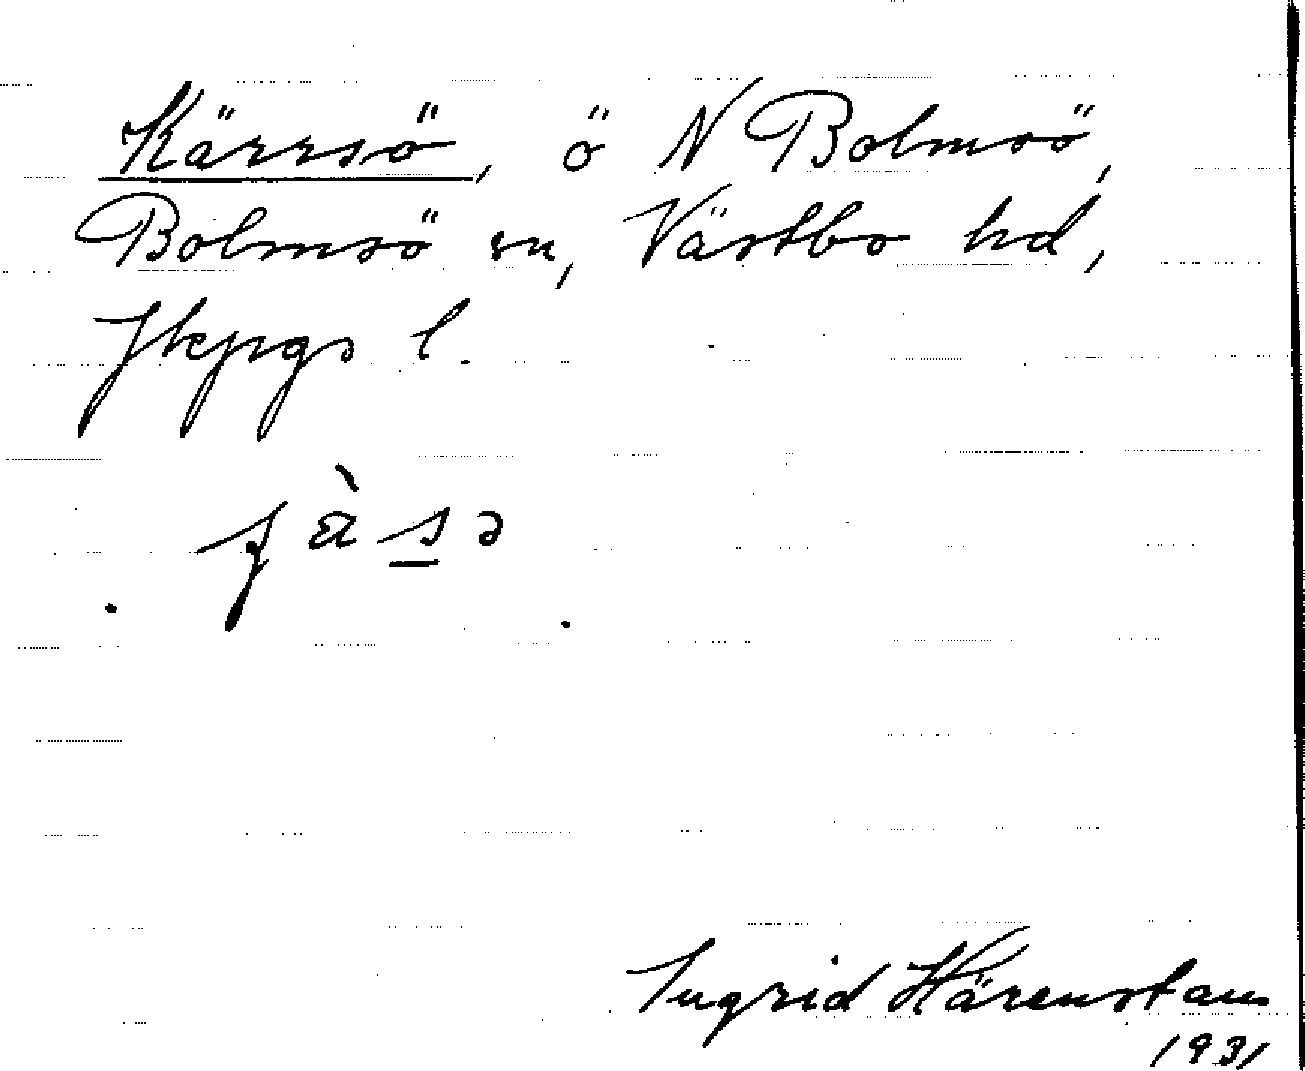 Kärrsö, ö N Bolmsö,
Bolmsö sn, Västbo hd,
Jkpgs l.
Ingrid Härenstam
1931